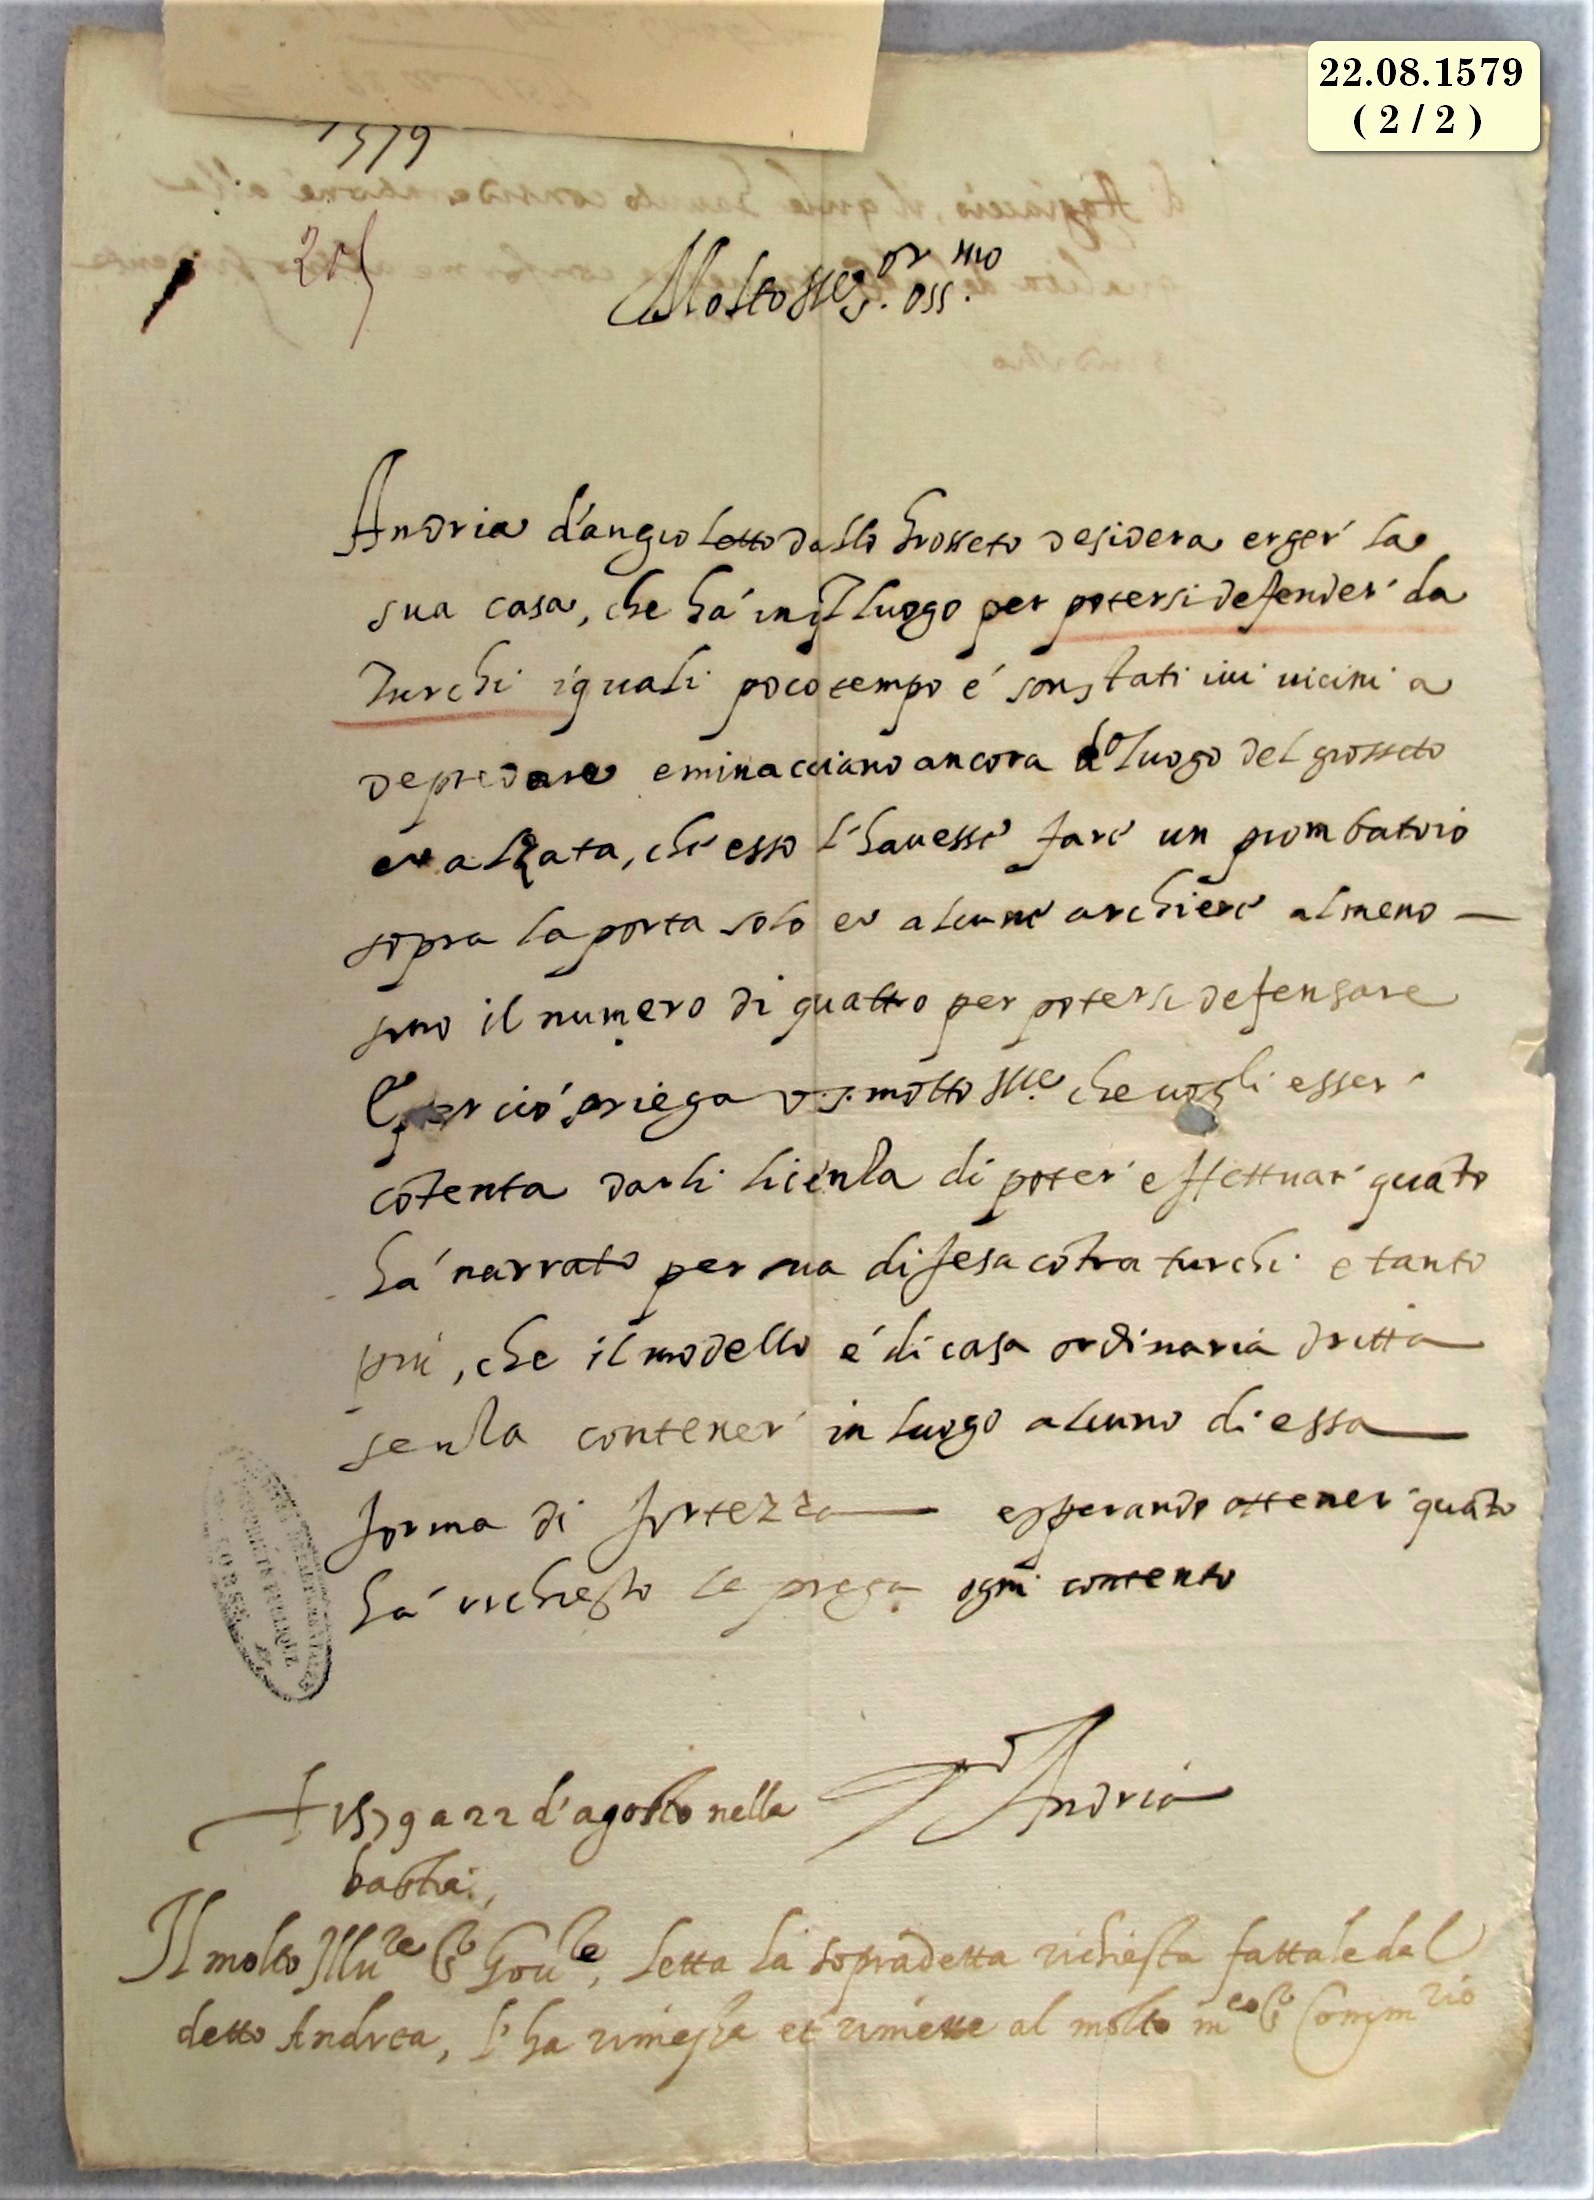 22.08.1579
( 2 / 2 )
1579
Molto Ill.e S.or oss.mo
Andria d'angioletto dallo Grosseto desidera erger' la
sua casa, che há in q.l luogo per potersi defender' da
Turchi i quali poco tempo é son stati ivi vicini a
depredare e minacciano ancora d.o luogo del grosseto
et alzata, che esso l'havesse fare un piombatoio
sopra la porta solo et alcune archiere almeno
sino il numero di quattro per potersi defensare
E perció priega V.S. molto Ill.e che vogli esser'
cõtenta darli licenza di poter' effettuar' quãto
há narrato per sua difesa cõtra turchi e tanto
piú, che il modello é di casa ordinaria dritta
senza contener' in luogo alcuno di essa
forma di fortezza e sperando ottener' quãto
há richiesto le prega ogni contento
D.o Andria
+ 1579 a 22 d'agosto nella
bastia,
Il molto Illu.re S.r Gov.re, letta la sopradetta richiesta fattale dal
detto Andrea, l'ha rimessa et rimette al molto m.co S.r Comm.rio
CORSE